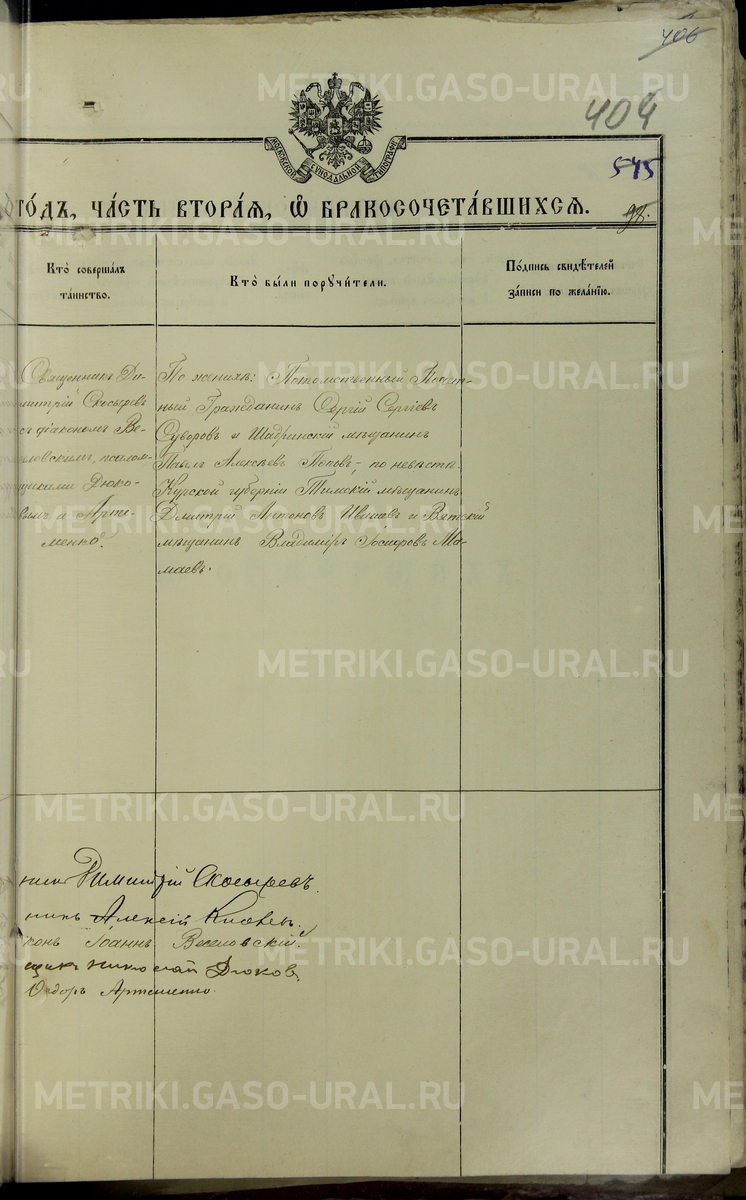 406
404
МОСКОВСКОЙ СѴНОДАЛЬНОЙ ТИПОГРАФІИ
545
го́дъ, ча́сть втора́ѧ, ѡ҆ бракосочета́вшихсѧ.
98.
Кто̀ соверша́лъ та́инство.
Кто̀ бы́ли порꙋчи́тели.
По́дпись свидѣ́телей за́писи по жела́нїю.
Священникъ Ди-
митрій Скосыревъ
съ діакономъ Ве-
селовскимъ, псалом-
щиками Дюко-
вымъ и Арте-
менко.
По женихѣ: Потомственный Почет-
ный Гражданинъ Сергій Сергіевъ
Суворовъ и Шадринскій мѣщанинъ
Павелъ Алексѣевъ Поповъ, по невѣстѣ:
Курской губерніи Тимскій мѣщанинъ
Дмитрій Антоновъ и Вятскій
мѣщанинъ Владиміръ Іосифовъ Ма-
маевъ.
никъ Димитрій Скосыревъ.
никъ Алексій
конъ Іоаннъ Веселовскій
щик Николай Дюков
Ѳедоръ Артеменко
METRIKI.GASO-URAL.RU